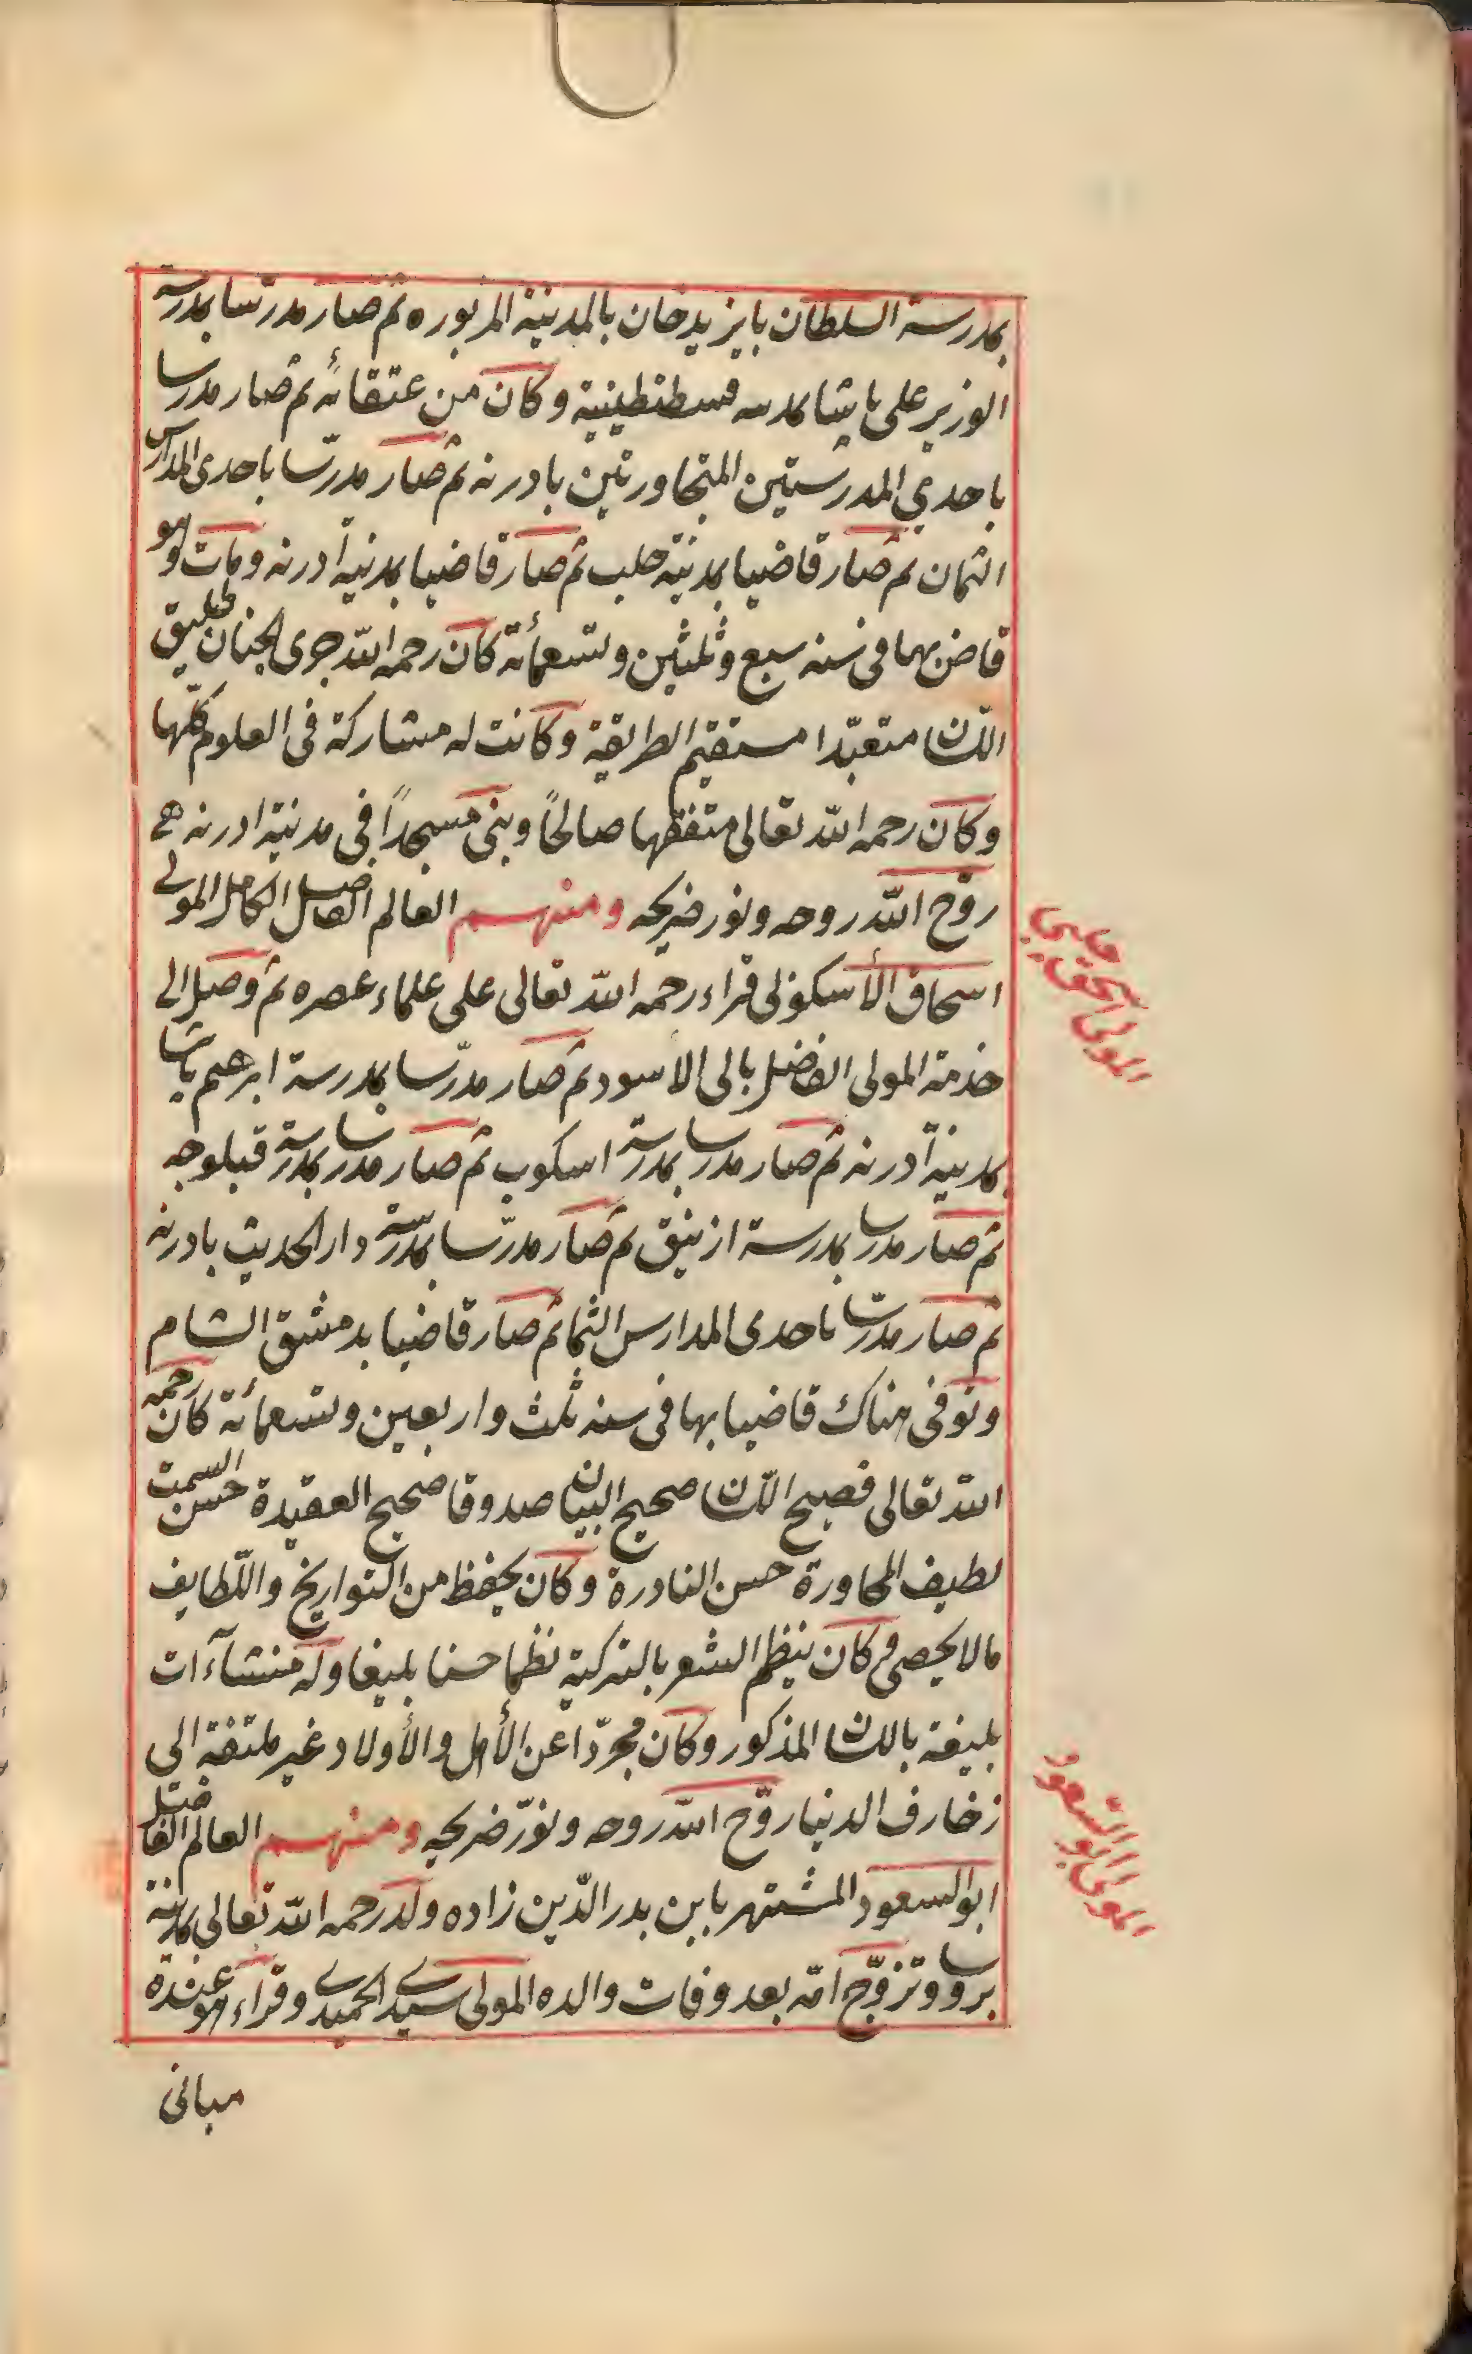 بمدرسة السلطان بايزيدخان بالمدينة المزبوره ثم صار مدرسا بمدرسة
الوزير على باشا بمدينه قسطنطينية وكان من عتقائه ثم صار مدرسا
باحدي المدرستين المتجاورتين بادرنه ثم صار مدرّسا باحدى المدارس
الثمان ثم صار قاضيا بمدينة حلب ثم صار قاضيا بمدينة ادرنه ومات وهو
قاض بهما فى سنه سبع وثلثين وتسعمأئة كان رحمه اللّه جرى الجنان طليق
اللّسان متعبّدا مستقيم الطريقة وكانت له مشاركة فى العلوم كلّها
وكان رحمه اللّه تعالى متفقها صالحًا وبنى مسجدًا فى مدينة ادرنه
روّح اللّه روحه ونور ضريحه ومنهم العالم الفاضل الكامل المولى
اسحاق الأسكوبى قراء رحمه اللّه تعالى على علماء عصره ثم وصل الى
خدمة المولى الفاضل بالى الاسود ثم صار مدرّسا بمدرسة ابرهيم پاشا
بمدينة ادرنه ثم صار مدرسا بمدرسة اسكوب ثم صار مدرسا بمدرسة قبلوجه
ثم صار مدرسا بمدرسة ازنيق ثم صار مدرّسا بمدرسة دار الحديث بادرنه
ثم صار مدرسّا باحدى المدارس الثما ثم صار قاضيا بدمشق الشام
وتوفى هناك قاضيا بها فى سنه ثلث واربعين وتسعمأئة كان رحمه
اللّه تعالى فصيح اللّسان صحيح البيان صدوقا صحيح العقيدة حسن السمت
لطيف المحاورة حسن النادرة وكان يحفظ من التواريخ واللّطايف
مالا يحصى وكان ينظم الشعر بالتركية نظما حسنا بليغا وله منشاآت
بليغة باللسان المذكور وكان مجرّدا عن الأهل والأولاد غير ملتفة الى
زخارف الدنيا روّح اللّه روحه ونوّر ضريحه ومنهم العالم الفاضل
ابو السعود المشتهر بابن بدر الدّين زاده ولد رحمه اللّه تعالى بمدينة
بروسا وتزوّج امّه بعد وفات والده المولى سيدى الحميدى وقراء هو عنده
مبانى
المولى اسحق چلبى
المولى ابو السعود